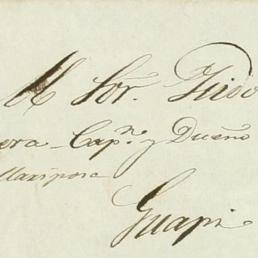 Al Sor. Fido
era Capn. y Dueño
Mariposa
Guapi